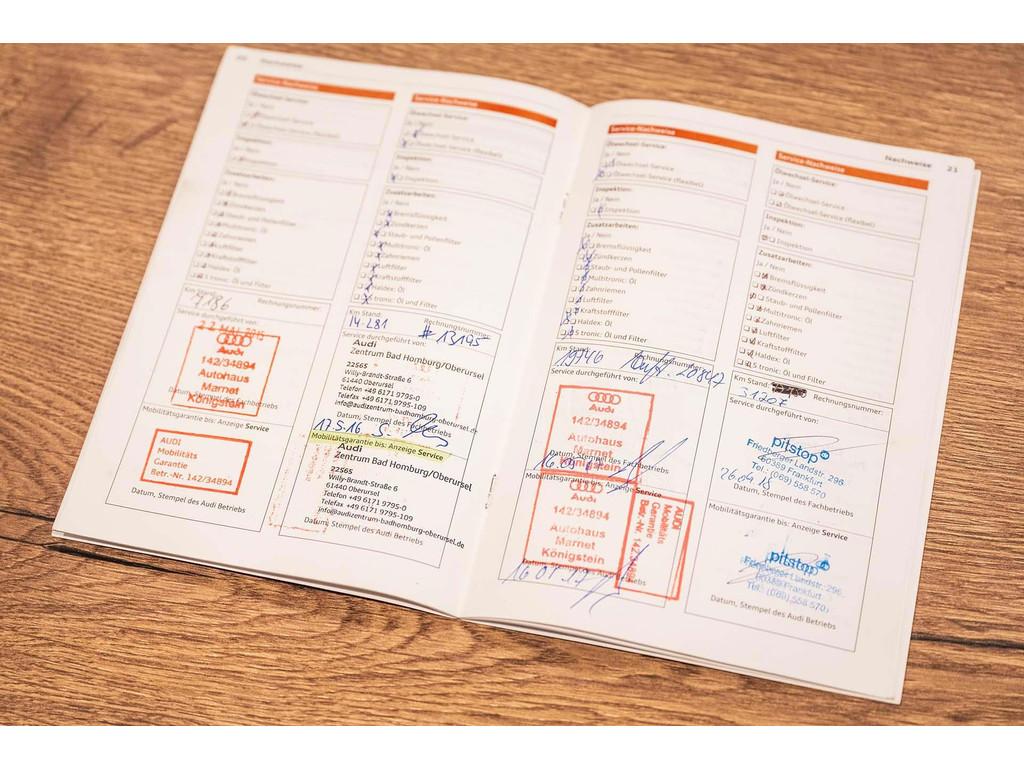 Nachweise
Service-Nachweise
Ölwechsel-Service:
Ja / Nein
Ölwechsel-Service
Ölwechsel-Service (flexibel)
Inspektion:
Ja / Nein
Inspektion
Zusatzarbeiten:
Ja / Nein
Bremsflüssigkeit
Zündkerzen
Staub- und Pollenfilter
Multitronic: Öl
Zahnriemen
Luftfilter
Kraftstofffilter
Haldex: Öl
S tronic: Öl und Filter
Km Stand:
Rechnungsnummer:
7.186
Service durchgeführt von:
Audi
142/34894
Autohaus
Marnet
Königstein
Datum, Stempel des Fachbetriebs
Mobilitätsgarantie bis: Anzeige Service
AUDI
Mobilitäts
Garantie
Betr.-Nr. 142/34894
Datum, Stempel des Audi Betriebs
Service-Nachweise
Ölwechsel-Service:
Ja / Nein
Ölwechsel-Service
Ölwechsel-Service (flexibel)
Inspektion:
Ja / Nein
Inspektion
Zusatzarbeiten:
Ja / Nein
Bremsflüssigkeit
Zündkerzen
Staub- und Pollenfilter
Multitronic: Öl
Zahnriemen
Luftfilter
Kraftstofffilter
Haldex: Öl
S tronic: Öl und Filter
Km Stand:
Rechnungsnummer:
14.281
# 13195
Service durchgeführt von:
Audi
Zentrum Bad Homburg/Oberursel
22565
Willy-Brandt-Straße 6
61440 Oberursel
Telefon +49 6171 9795-0
Telefax +49 6171 9795-109
info@audizentrum-badhomburg-oberursel.de
Datum, Stempel des Fachbetriebs
17.5.16
Mobilitätsgarantie bis: Anzeige Service
Audi
Zentrum Bad Homburg/Oberursel
22565
Willy-Brandt-Straße 6
61440 Oberursel
Telefon +49 6171 9795-0
Telefax +49 6171 9795-109
info@audizentrum-badhomburg-oberursel.de
Datum, Stempel des Audi Betriebs
Nachweise 21
Service-Nachweise
Ölwechsel-Service:
Ja / Nein
Ölwechsel-Service
Ölwechsel-Service (flexibel)
Inspektion:
Ja / Nein
Inspektion
Zusatzarbeiten:
Ja / Nein
Bremsflüssigkeit
Zündkerzen
Staub- und Pollenfilter
Multitronic: Öl
Zahnriemen
Luftfilter
Kraftstofffilter
Haldex: Öl
S tronic: Öl und Filter
Km Stand:
Rechnungsnummer:
19746
Service durchgeführt von:
Audi
142/34894
Autohaus
Marnet
Königstein
Datum, Stempel des Fachbetriebs
Mobilitätsgarantie bis: Anzeige Service
Audi
142/34894
Autohaus
Marnet
Königstein
AUDI
Mobilitäts
Garantie
Betr.-Nr. 142/34894
Datum, Stempel des Audi Betriebs
Service-Nachweise
Ölwechsel-Service:
Ja / Nein
Ölwechsel-Service
Ölwechsel-Service (flexibel)
Inspektion:
Ja / Nein
Inspektion
Zusatzarbeiten:
Ja / Nein
Bremsflüssigkeit
Zündkerzen
Staub- und Pollenfilter
Multitronic: Öl
Zahnriemen
Luftfilter
Kraftstofffilter
Haldex: Öl
S tronic: Öl und Filter
Km Stand:
Rechnungsnummer:
31207
Service durchgeführt von:
pitstop
Friedberger Landstr. 296
60389 Frankfurt
Tel.: (069) 558 570
26.09.18
Datum, Stempel des Fachbetriebs
Mobilitätsgarantie bis: Anzeige Service
pitstop
Friedberger Landstr. 296
60389 Frankfurt
Tel.: (069) 558 570
Datum, Stempel des Audi Betriebs